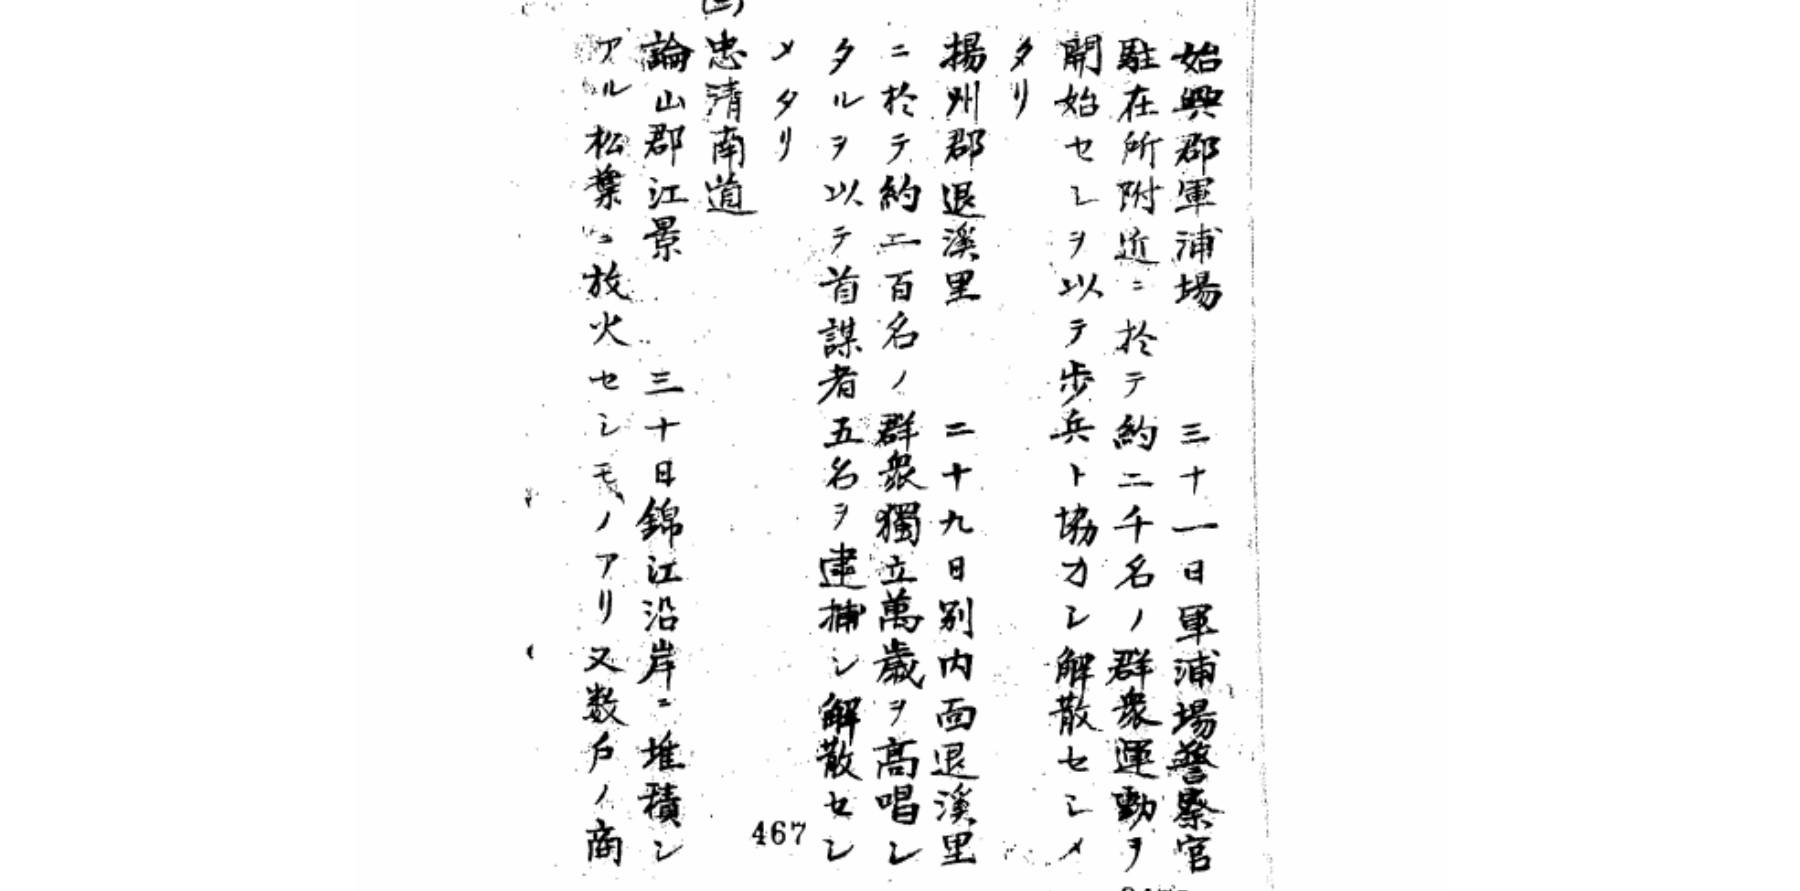 始興郡軍浦場　三十一日軍浦場警察官
駐在所附近ニ於テ約二千名ノ群衆運動ヲ
開始セシヲ以テ歩兵ト協力シ解散セシメ
タリ
揚州郡退溪里　二十九日別内面退溪里
ニ於テ約二百名ノ群衆獨立萬歳ヲ高唱シ
タルヲ以テ首謀者五名ヲ逮捕シ解散セシ
メタリ
忠清南道
論山郡江景　三十日錦江沿岸ニ堆積シ
アル松葉ニ放火セシモノアリ又数戸ノ商
467